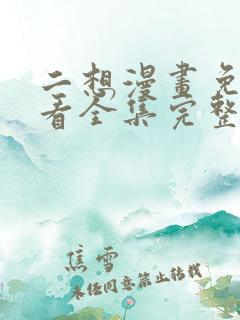 二想漫畫免
看全集完整
焦雪
未经同意禁止转载